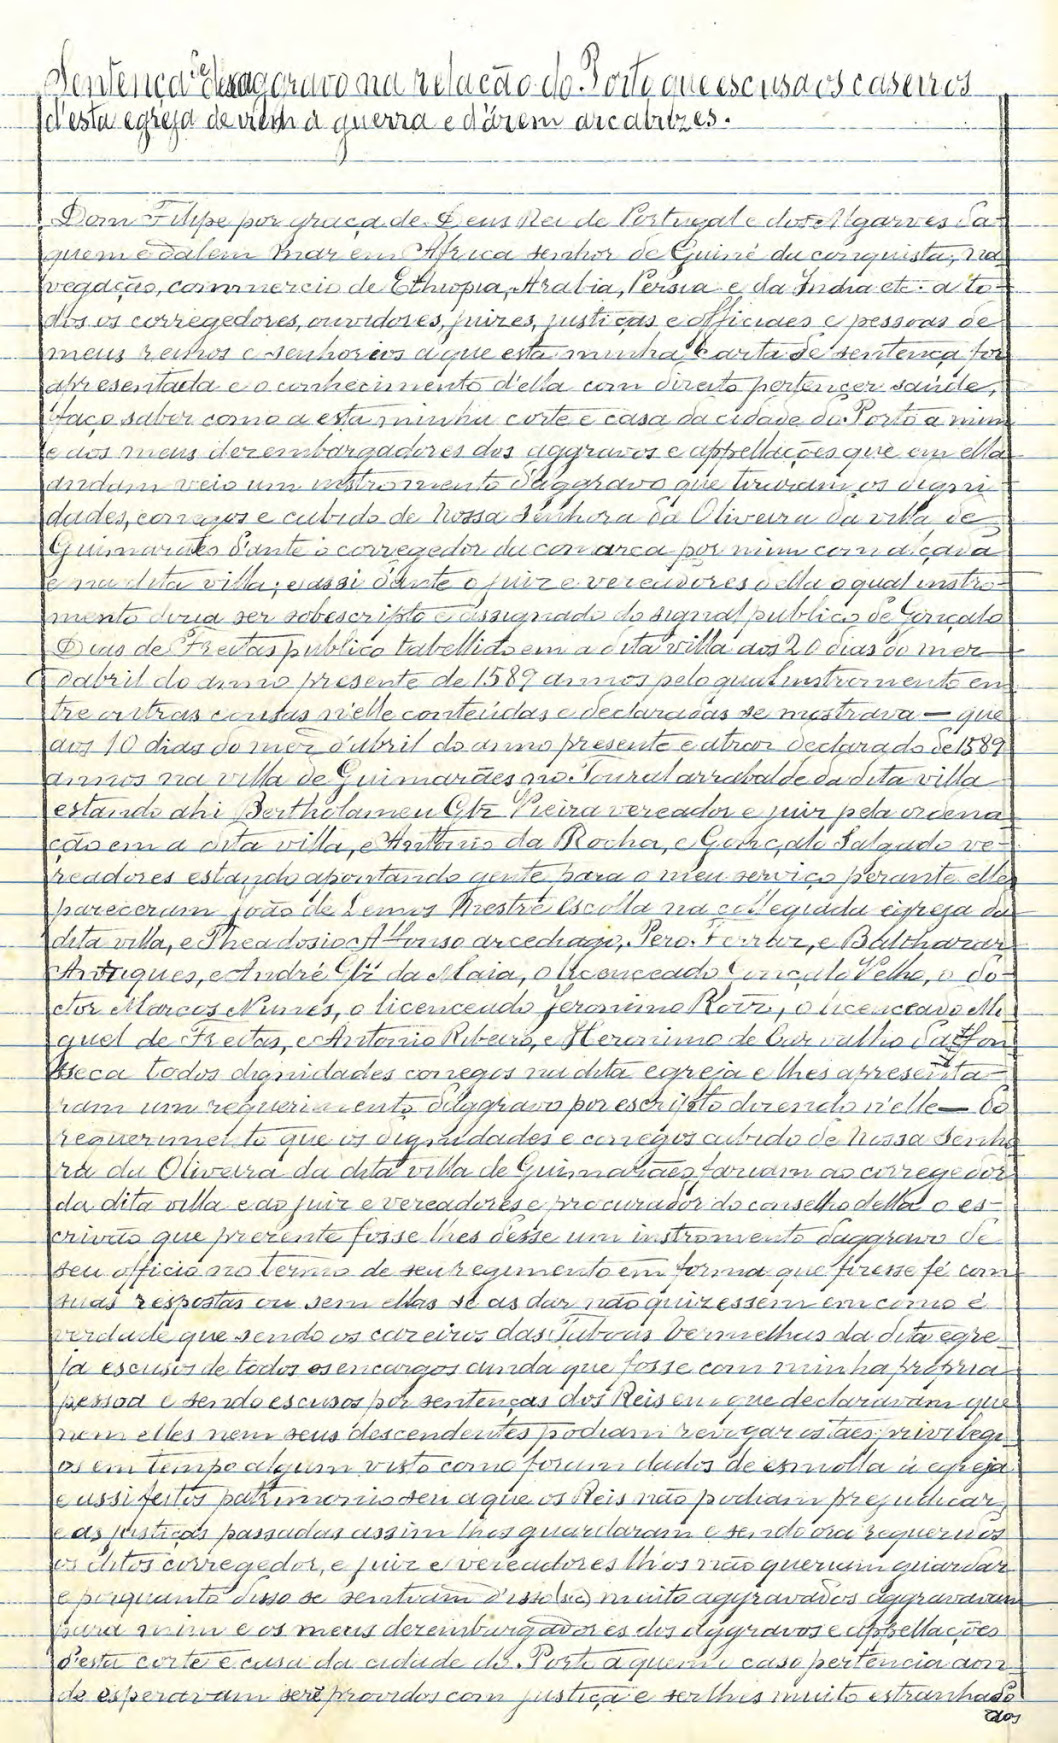 Sentença de desaggravo na relacão do Porto que escusa os caseiros
d'esta egreja de virem á guerra e d'árem arcabuzes.
Dom Filipe por graça de Deus Rei de Portugal e dos Algarves da
quem e dalem mar em Africa senhor de Guiné da conquista, na
vegação, commercio de Ethiopia, Arabia, Persia e da India etc. a to-
dos os corregedores, ouvidores, juizes, justiças e officiaes e pessoas de
meus reinos e senhorios a que esta minha carta de sentença for
apresentada e o conhecimento d'ella com direito pertençer saude,
faço saber como a esta minha corte e casa da cidade do Porto a mim
e aos meus dezembargadores dos aggravos e appellações que em ella
andam veio um instromento d'aggravo que tiraram os digni-
dades, conegos e cabido de Nossa Senhora da Oliveira da villa de
Guimarães d'ante o corregedor da comarca por mim com alçada
e na dita villa; e assi d'ante o juiz e vereadores della o qual instro-
mento dizia ser sobescripto e assignado do signal publico de Gonçalo
Dias de Freitas publico tabellião em a dita villa aos 20 dias do mez
dabril do anno presente de 1589 annos pelo qual instromento en
tre outras cousas n'elle conteúdas e declaradas se mostrava — que
aos 10 dias do mez d'abril do anno presente e atraz declarado de 1589
annos na villa de Guimarães no Toural arrabalde da dita villa
estando ahi Bertholameu Glz Vieira vereador e juiz pela ordena
ção em a dita villa, e Antonio da Rocha, e Gonçalo Salgado ve-
readores estando apontando gente para o meu serviço perante elles
pareceram João de Lemos Mestre Escolla na collegiada egreja da
dita villa, e Theadosio Affonso arcediago, Pero Ferraz, e Balthazar
Antigues, e André Glz da Maia, o licenceado Gonçalo Velho, o do-
ctor Marcos Nunes, o licenceado Jeronimo Roiz, o licenceado Mi
guel de Freitas, e Antonio Ribeiro, e Heronimo de Carvalho da Fon
seca todos dignidades conegos na dita egreja e lhes apresenta-
ram um requerimento d'aggravo por escripto dizendo n'elle — do
requerimento que os dignidades e conegos cabido de Nossa Senho
ra da Oliveira da dita villa de Guimarães faziam ao corregedor
da dita villa e ao juiz e vereadores e procurador do conselho della o es-
crivão que prezente fosse lhes désse um instromento daggravo de
seu officio no termo de seu regimento em forma que fizesse fé com
suas respostas ou sem ellas se as dar não quizessem em como é
verdade que sendo os cazeiros das Taboas Vermelhas da dita egre
ja escusos de todos os encargos ainda que fosse com minha própria
pessoa e sendo escusos por sentenças dos Reis em que declaravam que
nem elles nem seus descendentes podiam revogar os taes privilegi
os em tempo algum visto como foram dados de esmolla á egreja
e assi feitos patrimonio seu a que os Reis não podiam prejudicar,
e as justiças passadas assim lhos guardaram e sendo ora requeridos
os ditos corregedor, e juiz e vereadores lh'os não queriam guardar
e porquanto disso se sentiam d'isso (sic) muito aggravados aggravavam
para mim e os meus dezembargadores dos aggravos e appellações
d'esta corte e casa da cidade do Porto a quem o caso pertencia aon
de esperavam serẽ providos com justiça e serlhes muito estranhado
aos